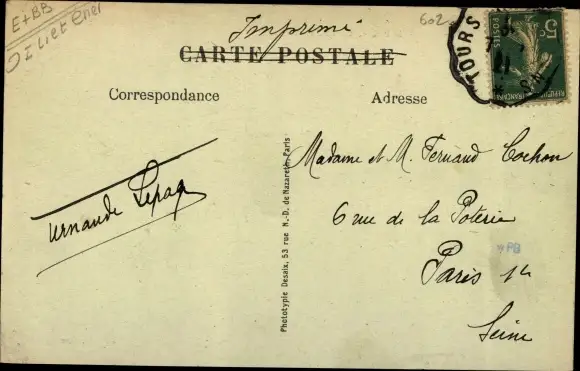 E+BB
Imprimé
602
CARTE POSTALE
Correspondance
Adresse
TOURS
5c
POSTES
Lepage
Madame et M. Fernand Cochon
6 rue de la Poterie
Paris 1er
Seine
PB
Phototypie Desaix, 53 rue N.-D. de Nazareth, Paris